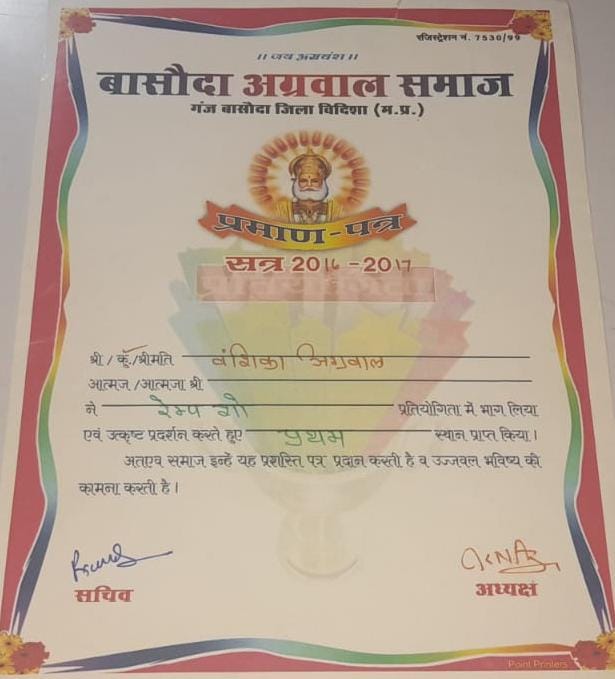 रजिस्ट्रेशन नं. 7530/99
।। जय अग्रवंश।।
बासौदा अग्रवाल समाज
गंज बासौदा जिला विदिशा (म.प्र.)
प्रमाण-पत्र
सत्र 2016-2017
श्री / कुँ./श्रीमति वंशिका अग्रवाल
आत्मज /आत्मजा श्री
ने रेम्प शो प्रतियोगिता में भाग लिया
एवं उत्कृष्ट प्रदर्शन करते हुए प्रथम स्थान प्राप्त किया।
अतएव समाज इन्हें यह प्रशस्ति पत्र प्रदान करती है व उज्जवल भविष्य की
कामना करती है।
सचिव अध्यक्ष
Point Printers